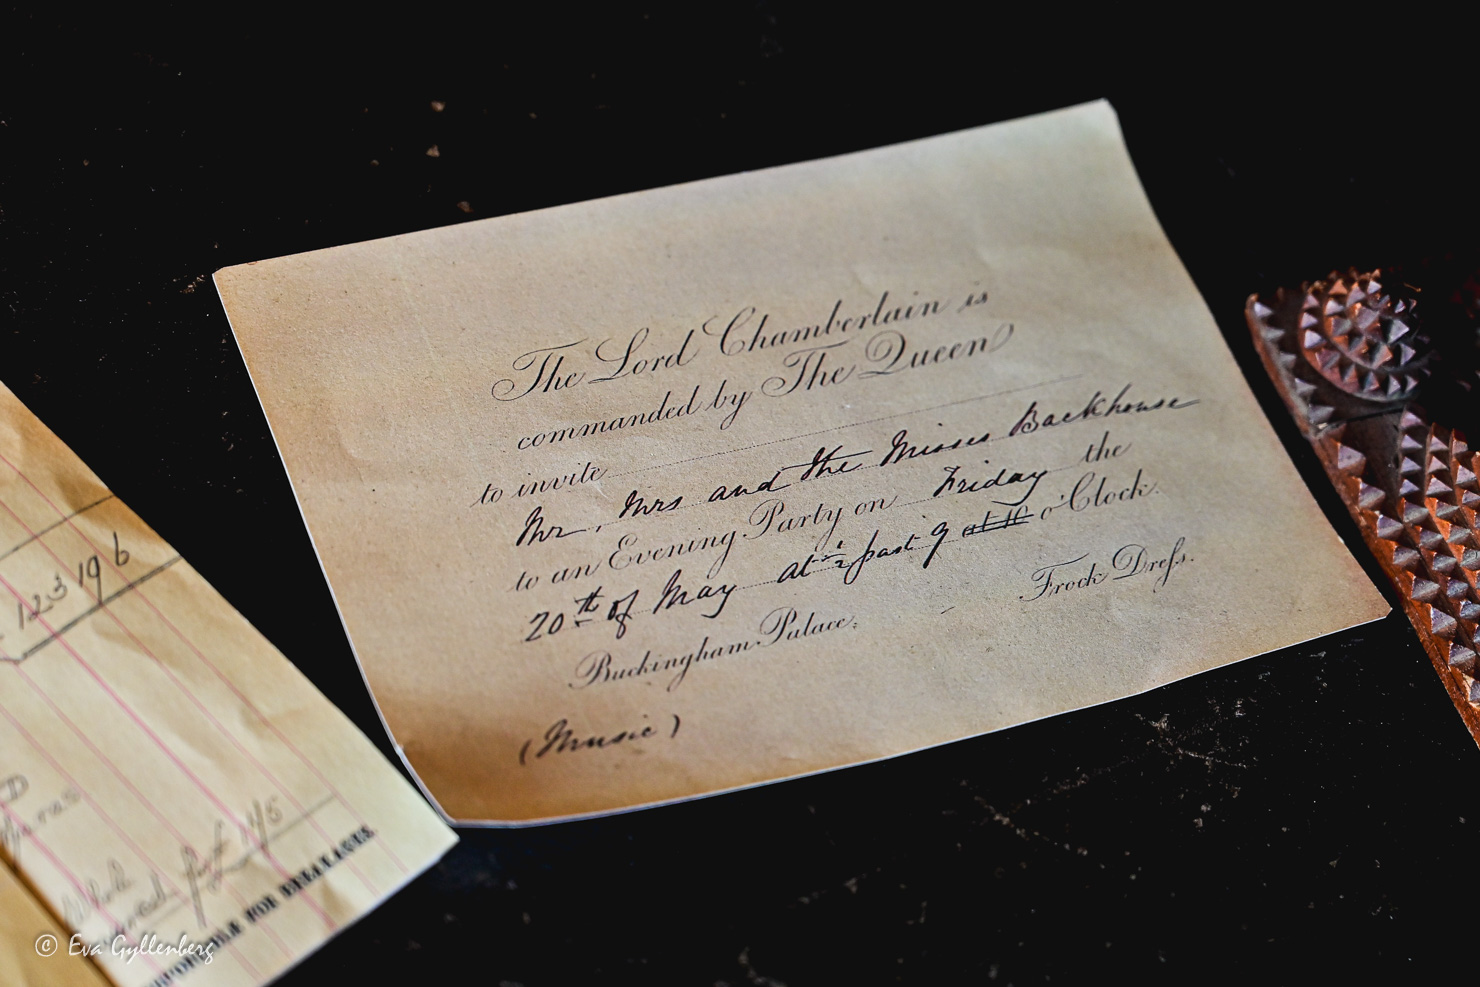 The Lord Chamberlain is
commanded by The Queen
to invite
Mr, Mrs and the Misses Backhouse
to an Evening Party on Friday the
20th of May at ½ past 9 at 10 o'Clock.
Buckingham Palace. Frock Dreſs.
(Music)
123 19 6
145
FOR
© Eva Gyllenberg